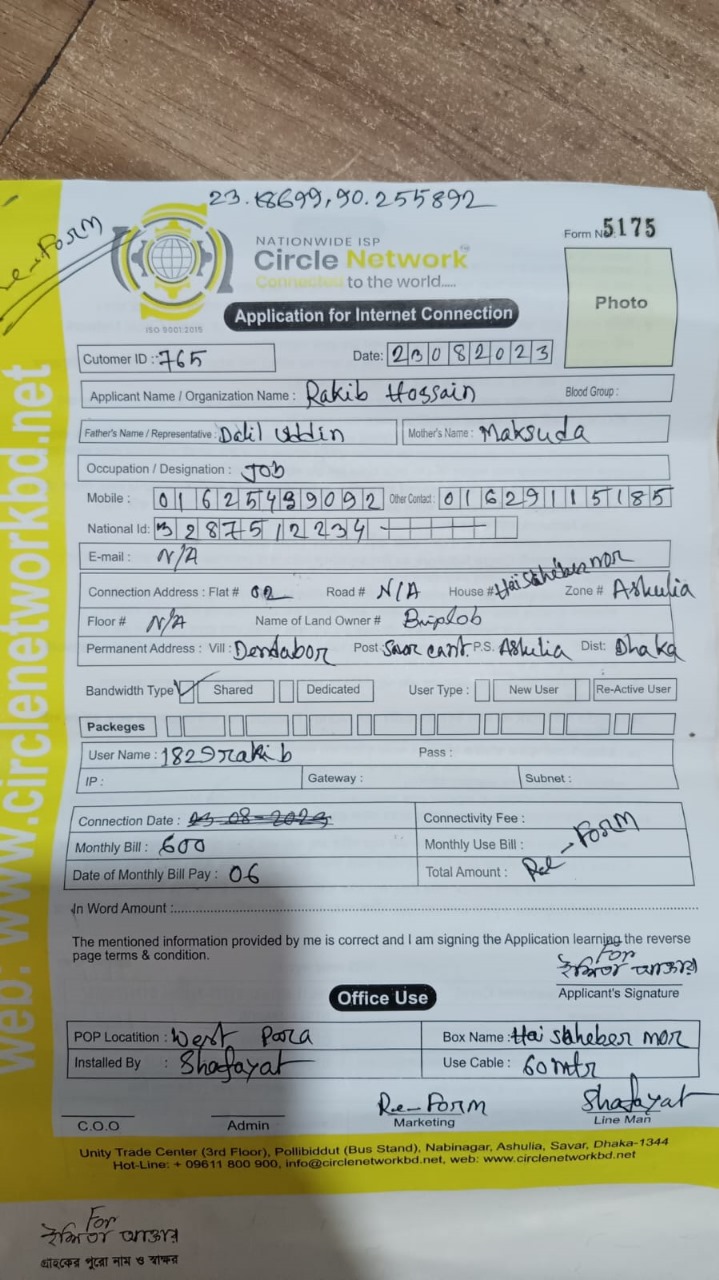 23.18699,90.255892
Re-Form
NATIONWIDE ISP
Circle Network
Connected to the world.....
ISO 9001:2015
Form No. 5175
Photo
Application for Internet Connection
Cutomer ID : 765 Date: 23082023
Applicant Name / Organization Name : Rakib Hossain Blood Group :
Father's Name / Representative : Dalil Uddin Mother's Name : Maksuda
Occupation / Designation : Job
Mobile : 01625499092 Other Contact : 01629115185
National Id: 3287512234
E-mail : N/A
Connection Address : Flat # 02 Road # N/A House # Hai Shaheber mor Zone # Ashulia
Floor # N/A Name of Land Owner # Biplob
Permanent Address : Vill : Dendabor Post : Savar cant. P.S. Ashulia Dist: Dhaka
Bandwidth Type Shared Dedicated User Type : New User Re-Active User
Packeges
User Name : 1829rakib Pass :
IP : Gateway : Subnet :
Connection Date : 23-08-2023 Connectivity Fee :
Monthly Bill : 600 Monthly Use Bill :
Date of Monthly Bill Pay : 06 Total Amount : Re-Form
In Word Amount :
The mentioned information provided by me is correct and I am signing the Application learning the reverse
page terms & condition.
For
আক্তার
Applicant's Signature
Office Use
POP Locatition : West Para Box Name : Hai Shaheber mor
Installed By : Shafayat Use Cable : 60 mtr
Re-Form Shafayat
C.O.O Admin Marketing Line Man
Unity Trade Center (3rd Floor), Pollibiddut (Bus Stand), Nabinagar, Ashulia, Savar, Dhaka-1344
Hot-Line: + 09611 800 900, info@circlenetworkbd.net, web: www.circlenetworkbd.net
web: www.circlenetworkbd.net
For
আক্তার
গ্রাহকের পুরো নাম ও স্বাক্ষর